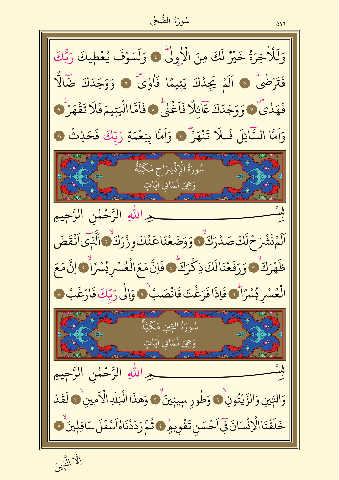 سُورَةُ الضُّحٰى ٥٩٦
وَلَلْاٰخِرَةُ خَيْرٌ لَكَ مِنَ الْاُولٰىۜ ﴿٤﴾ وَلَسَوْفَ يُعْطٖيكَ رَبُّكَ
فَتَرْضٰىۜ ﴿٥﴾ اَلَمْ يَجِدْكَ يَتٖيمًا فَاٰوٰىۖ ﴿٦﴾ وَوَجَدَكَ ضَٓالًّا
فَهَدٰىۖ ﴿٧﴾ وَوَجَدَكَ عَٓائِلًا فَاَغْنٰىۜ ﴿٨﴾ فَاَمَّا الْيَتٖيمَ فَلَا تَقْهَرْۜ ﴿٩﴾
وَاَمَّا السَّٓائِلَ فَلَا تَنْهَرْۜ ﴿١٠﴾ وَاَمَّا بِنِعْمَةِ رَبِّكَ فَحَدِّثْ ﴿١١﴾
سُورَةُ الْاِنْشِرَاحِ مَكِّيَّةٌ
وَهِيَ ثَمَانِي اٰيَاتٍ
بِسْمِ اللّٰهِ الرَّحْمٰنِ الرَّحٖيمِ
اَلَمْ نَشْرَحْ لَكَ صَدْرَكَۙ ﴿١﴾ وَوَضَعْنَا عَنْكَ وِزْرَكَۙ ﴿٢﴾ اَلَّذٖٓي اَنْقَضَ
ظَهْرَكَۙ ﴿٣﴾ وَرَفَعْنَا لَكَ ذِكْرَكَۜ ﴿٤﴾ فَاِنَّ مَعَ الْعُسْرِ يُسْرًاۙ ﴿٥﴾ اِنَّ مَعَ
الْعُسْرِ يُسْرًاۜ ﴿٦﴾ فَاِذَا فَرَغْتَ فَانْصَبْۙ ﴿٧﴾ وَاِلٰى رَبِّكَ فَارْغَبْ ﴿٨﴾
سُورَةُ التّٖينِ مَكِّيَّةٌ
وَهِيَ ثَمَانِي اٰيَاتٍ
بِسْمِ اللّٰهِ الرَّحْمٰنِ الرَّحٖيمِ
وَالتّٖينِ وَالزَّيْتُونِۙ ﴿١﴾ وَطُورِ سٖينٖينَۙ ﴿٢﴾ وَهٰذَا الْبَلَدِ الْاَمٖينِۙ ﴿٣﴾ لَقَدْ
خَلَقْنَا الْاِنْسَانَ فٖٓي اَحْسَنِ تَقْوٖيمٍۘ ﴿٤﴾ ثُمَّ رَدَدْنَاهُ اَسْفَلَ سَافِلٖينَۙ ﴿٥﴾
اِلَّا الَّذٖينَ